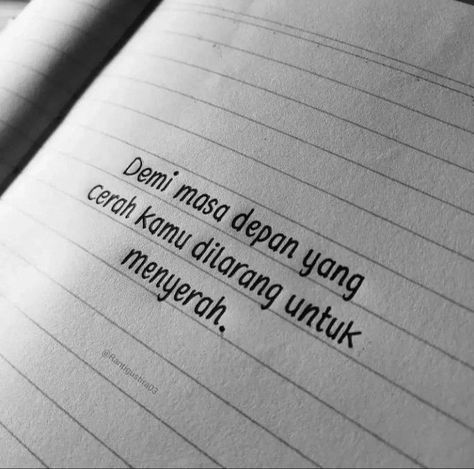 Demi masa depan yang
cerah kamu dilarang untuk
menyerah.